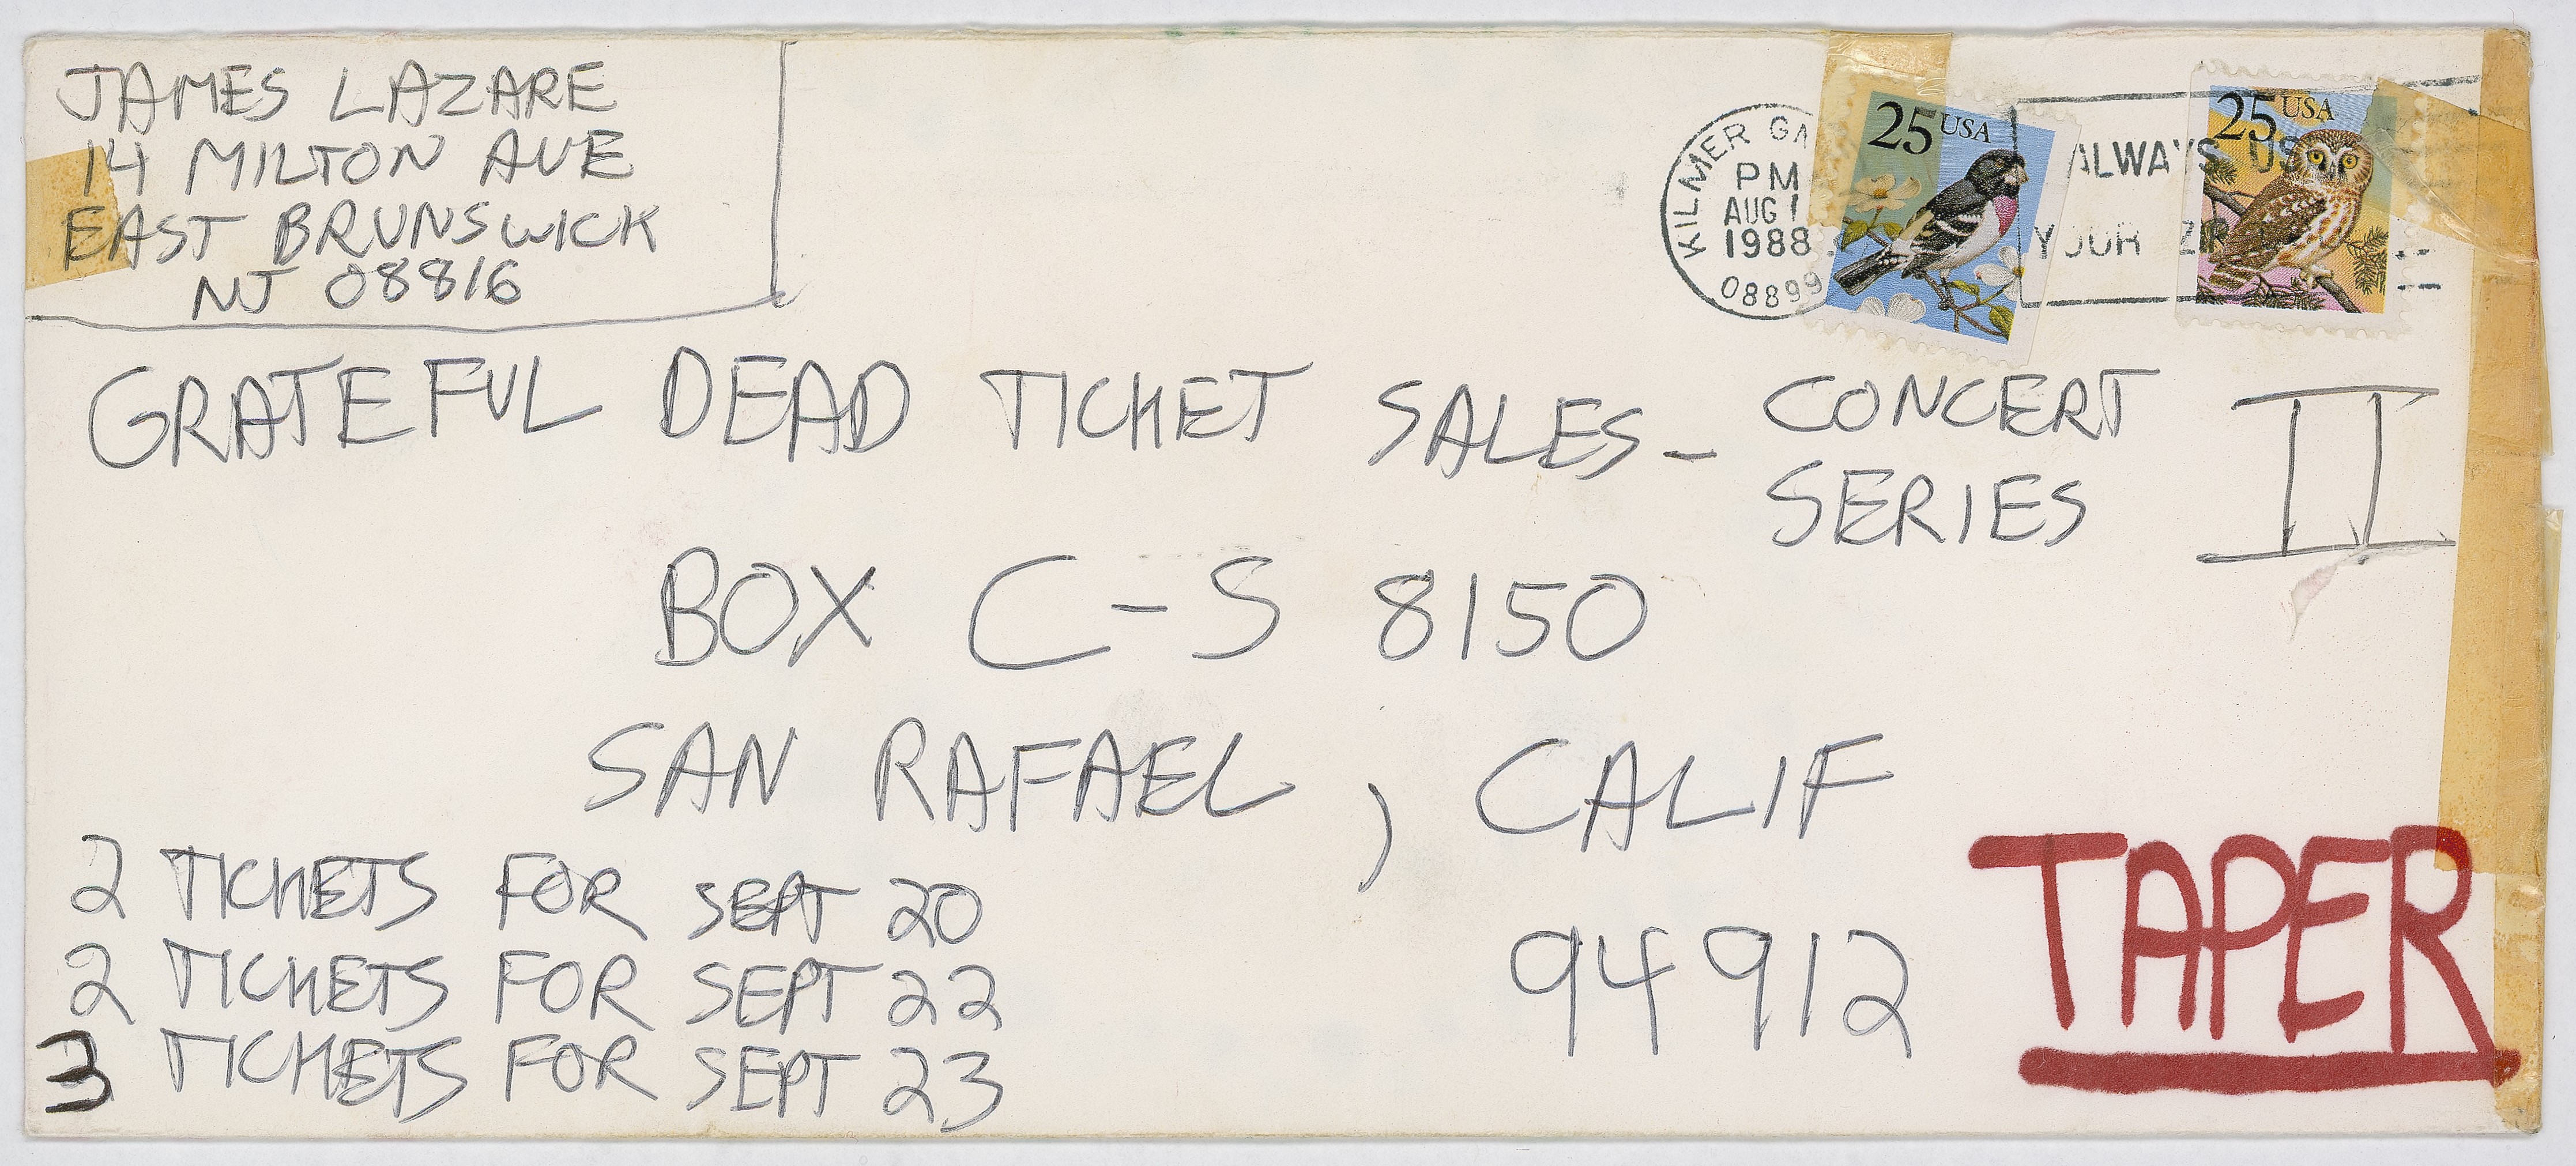 JAMES LAZARE
14 MILTON AVE
EAST BRUNSWICK
NJ 08816
KILMER
PM
AUG 1
1988
08899
25 USA
ALWAYS US
YOUR ZIP
25 USA
GRATEFUL DEAD TICKET SALES - CONCERT
SERIES
II
BOX C-S 8150
SAN RAFAEL, CALIF
94912
2 TICKETS FOR SEPT 20
2 TICKETS FOR SEPT 22
3 TICKETS FOR SEPT 23
TAPER